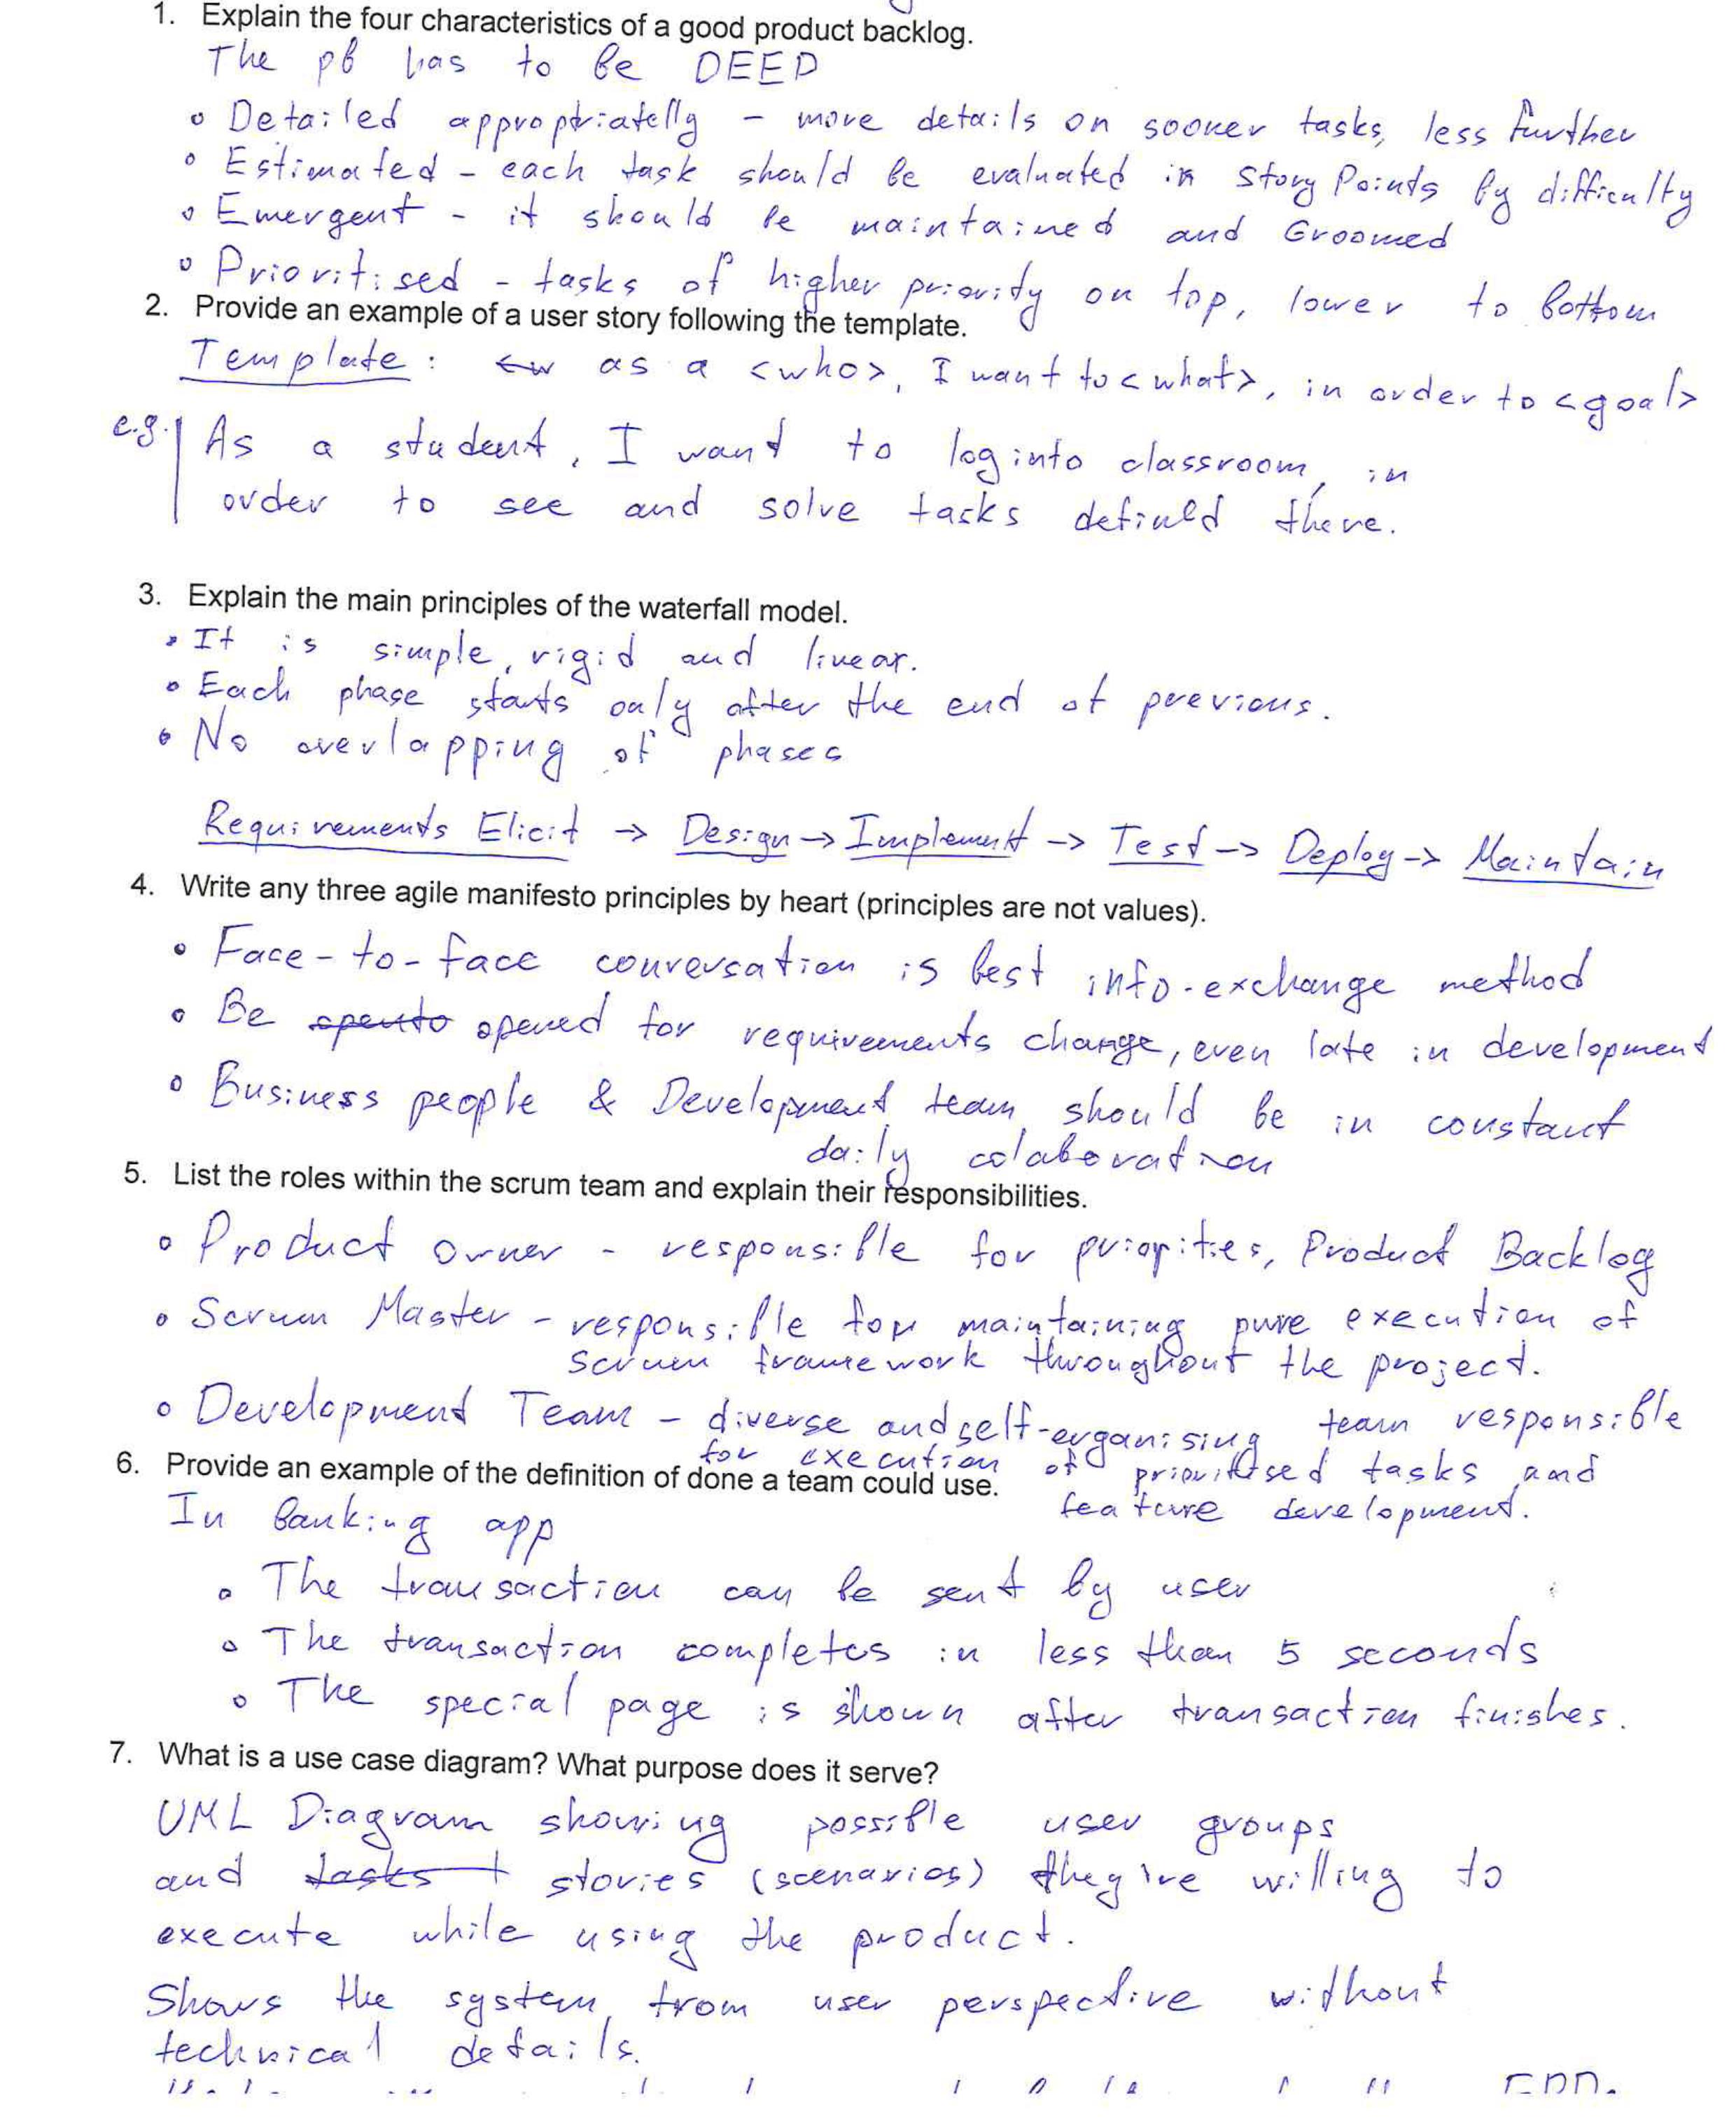 1. Explain the four characteristics of a good product backlog.
The pb has to be DEEP
Detailed appropriatelly - more details on sooner tasks, less further
Estimated - each task should be evaluated in Story Points by difficulty
Emergent - it should be maintained and Groomed
Prioritised - tasks of higher priority on top, lower to bottom
2. Provide an example of a user story following the template.
Template: as a <who>, I want to <what>, in order to <goal>
e.g. As a student, I want to log into classroom, in
order to see and solve tasks defined there.
3. Explain the main principles of the waterfall model.
It is simple, rigid and linear.
Each phase starts only after the end of previous.
No overlapping of phases
Requirements Elicit → Design → Implement → Test → Deploy → Maintain
4. Write any three agile manifesto principles by heart (principles are not values).
Face-to-face conversation is best info-exchange method
Be opened for requirements change, even late in development
Business people & Development team should be in constant
daily colaboration
5. List the roles within the scrum team and explain their responsibilities.
Product owner - responsible for priorities, Product Backlog
Scrum Master - responsible for maintaining pure execution of
scrum framework throughout the project.
Development Team - diverse and self-organising team responsible
for execution of prioritised tasks and
feature development.
6. Provide an example of the definition of done a team could use.
In banking app
The transaction can be sent by user
The transaction completes in less than 5 seconds
The special page is shown after transaction finishes.
7. What is a use case diagram? What purpose does it serve?
UML Diagram showing possible user groups
and tasks stories (scenarios) they're willing to
execute while using the product.
Shows the system from user perspective without
technical details.